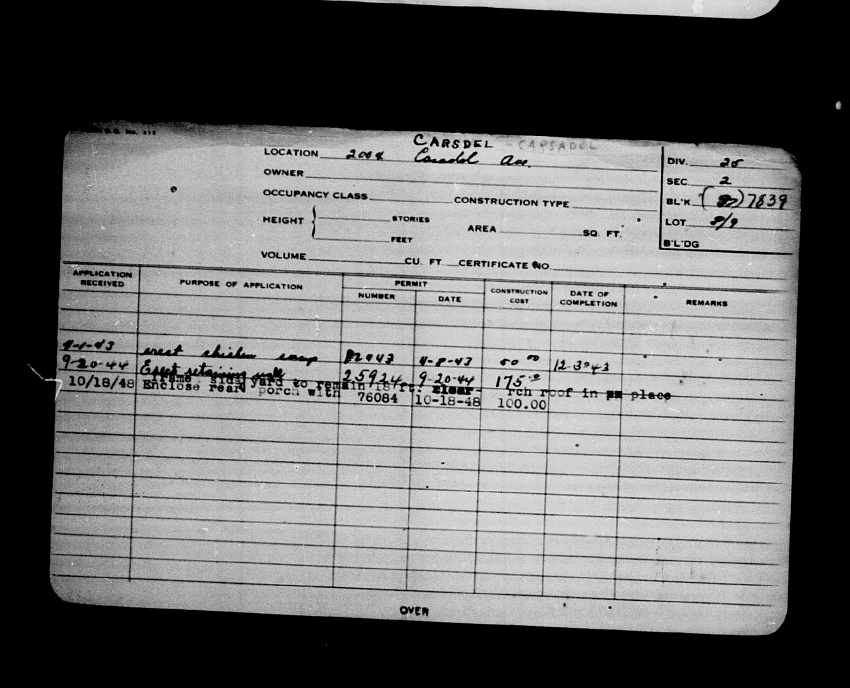 CARSDEL - CARSADEL
LOCATION 2004 Carsdel Ave.
DIV. 25
OWNER
SEC. 2
OCCUPANCY CLASS CONSTRUCTION TYPE
BL'K (82) 7839
HEIGHT { STORIES AREA SQ. FT.
LOT 8/9
FEET
B'L'DG
VOLUME CU. FT. CERTIFICATE NO.
APPLICATION RECEIVED PURPOSE OF APPLICATION PERMIT NUMBER DATE CONSTRUCTION COST DATE OF COMPLETION REMARKS
erect chicken coop 82943 4-8-43 50 00
9-20-44 Erect retaining wall 25924 9-20-44 175 00
frame side yard to remain 18 ft. rch roof in place
10/18/48 Enclose rear porch with 76084 10-18-48 100.00
OVER